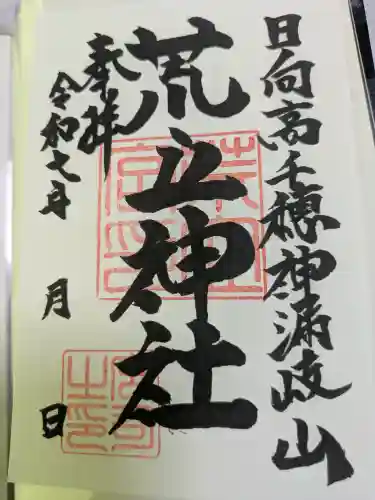 日向高千穂神漏岐山
荒立神社
奉拝
令和七年
月
日